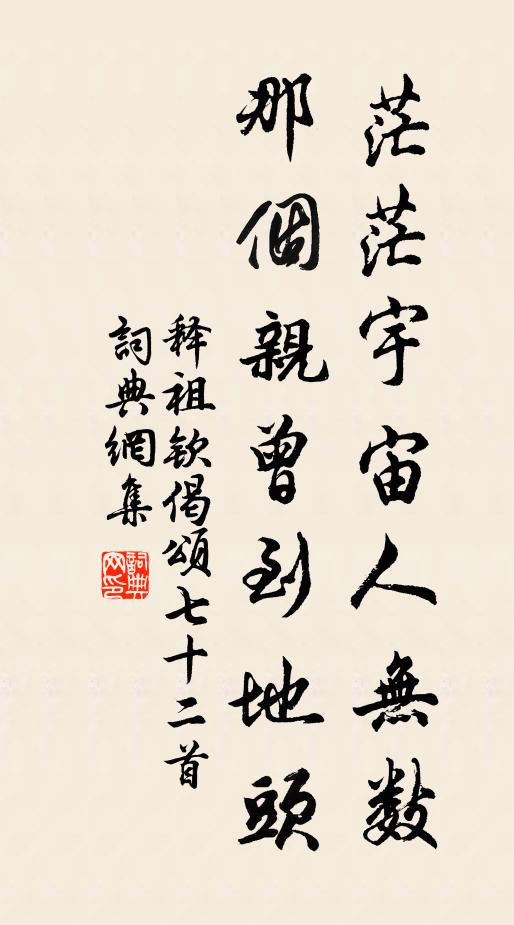 茫茫宇宙人無数
那個親曾到地頭
释祖钦偈頌七十二首
詞典網集
詞典网印